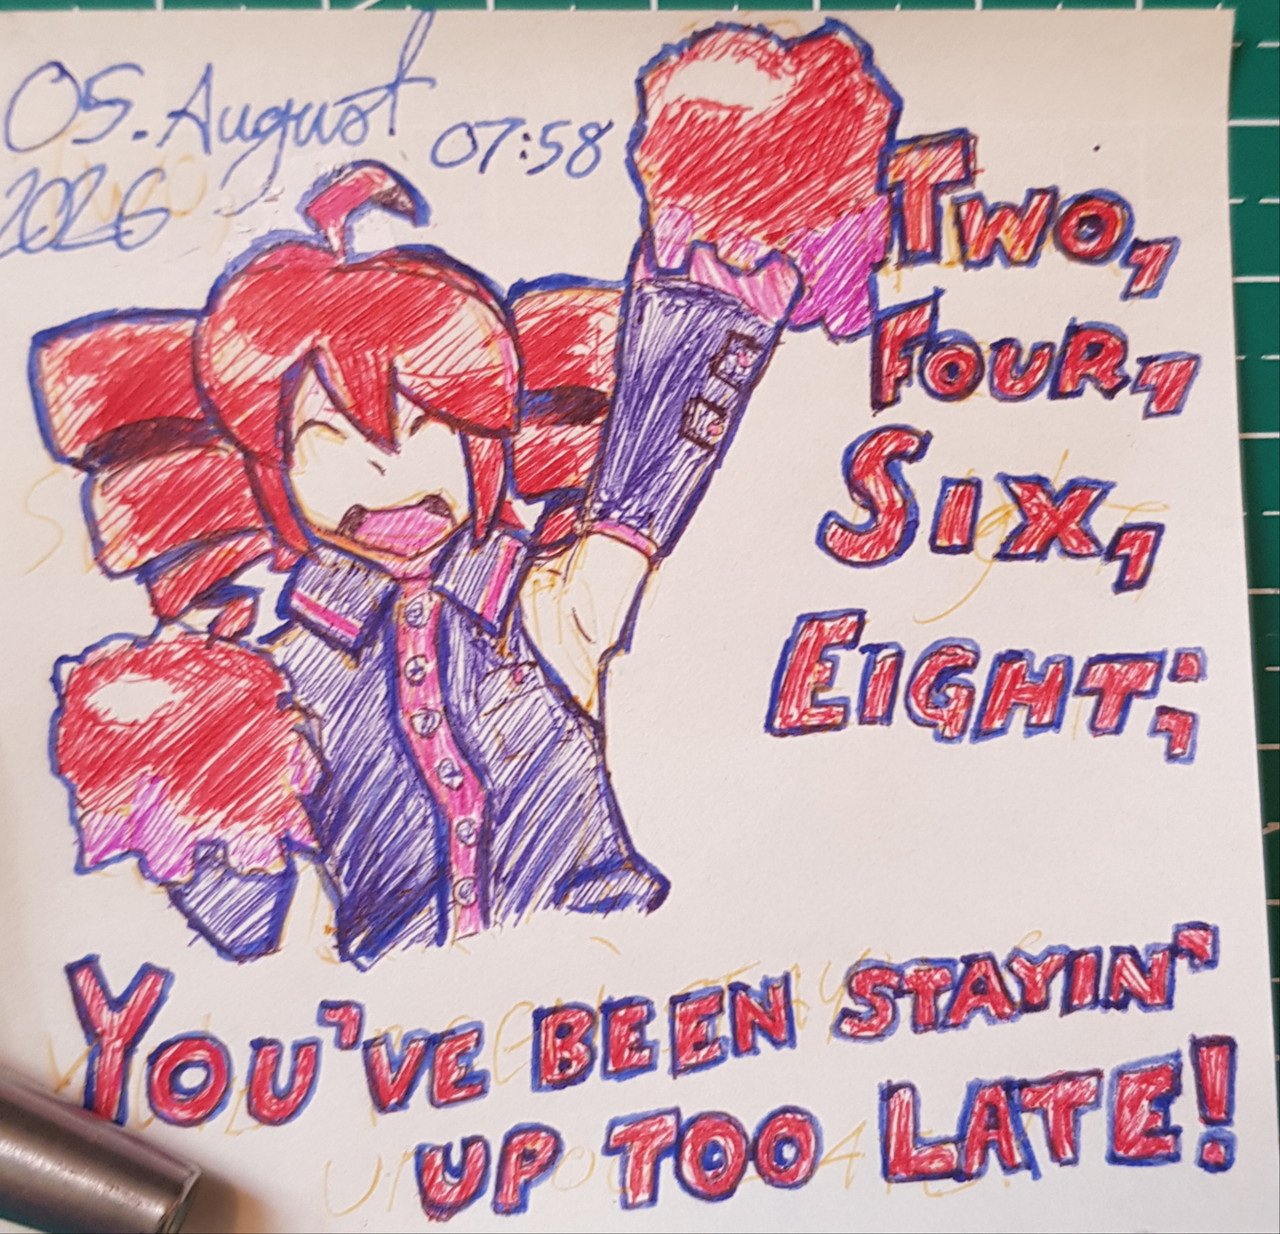 05. August 07:58
2026
Two,
Four,
Six,
Eight;
You've been stayin'
up too late!